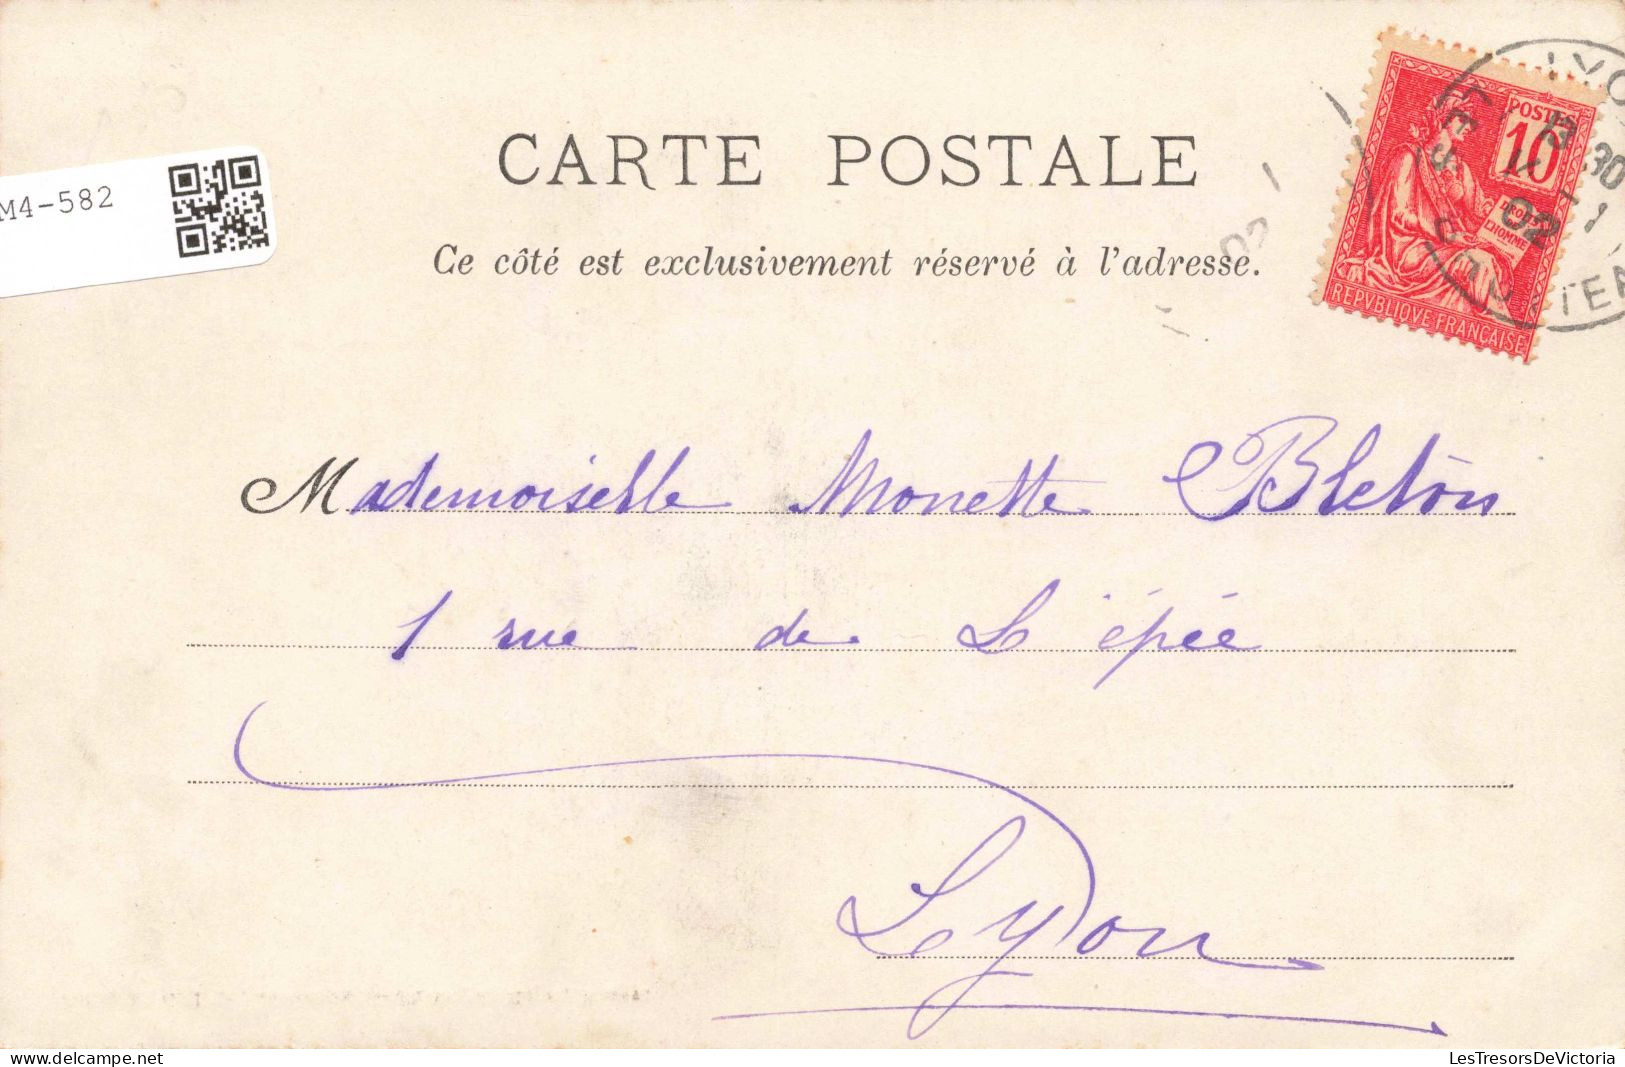 CARTE POSTALE
Ce côté est exclusivement réservé à l'adresse.
M4-582
POSTES
10
DROITS
DE
L'HOMME
REPVBLIQVE FRANÇAISE
02
Mademoiselle Monette Bleton
1 rue de L'épée
Lyon
LesTresorsDeVictoria